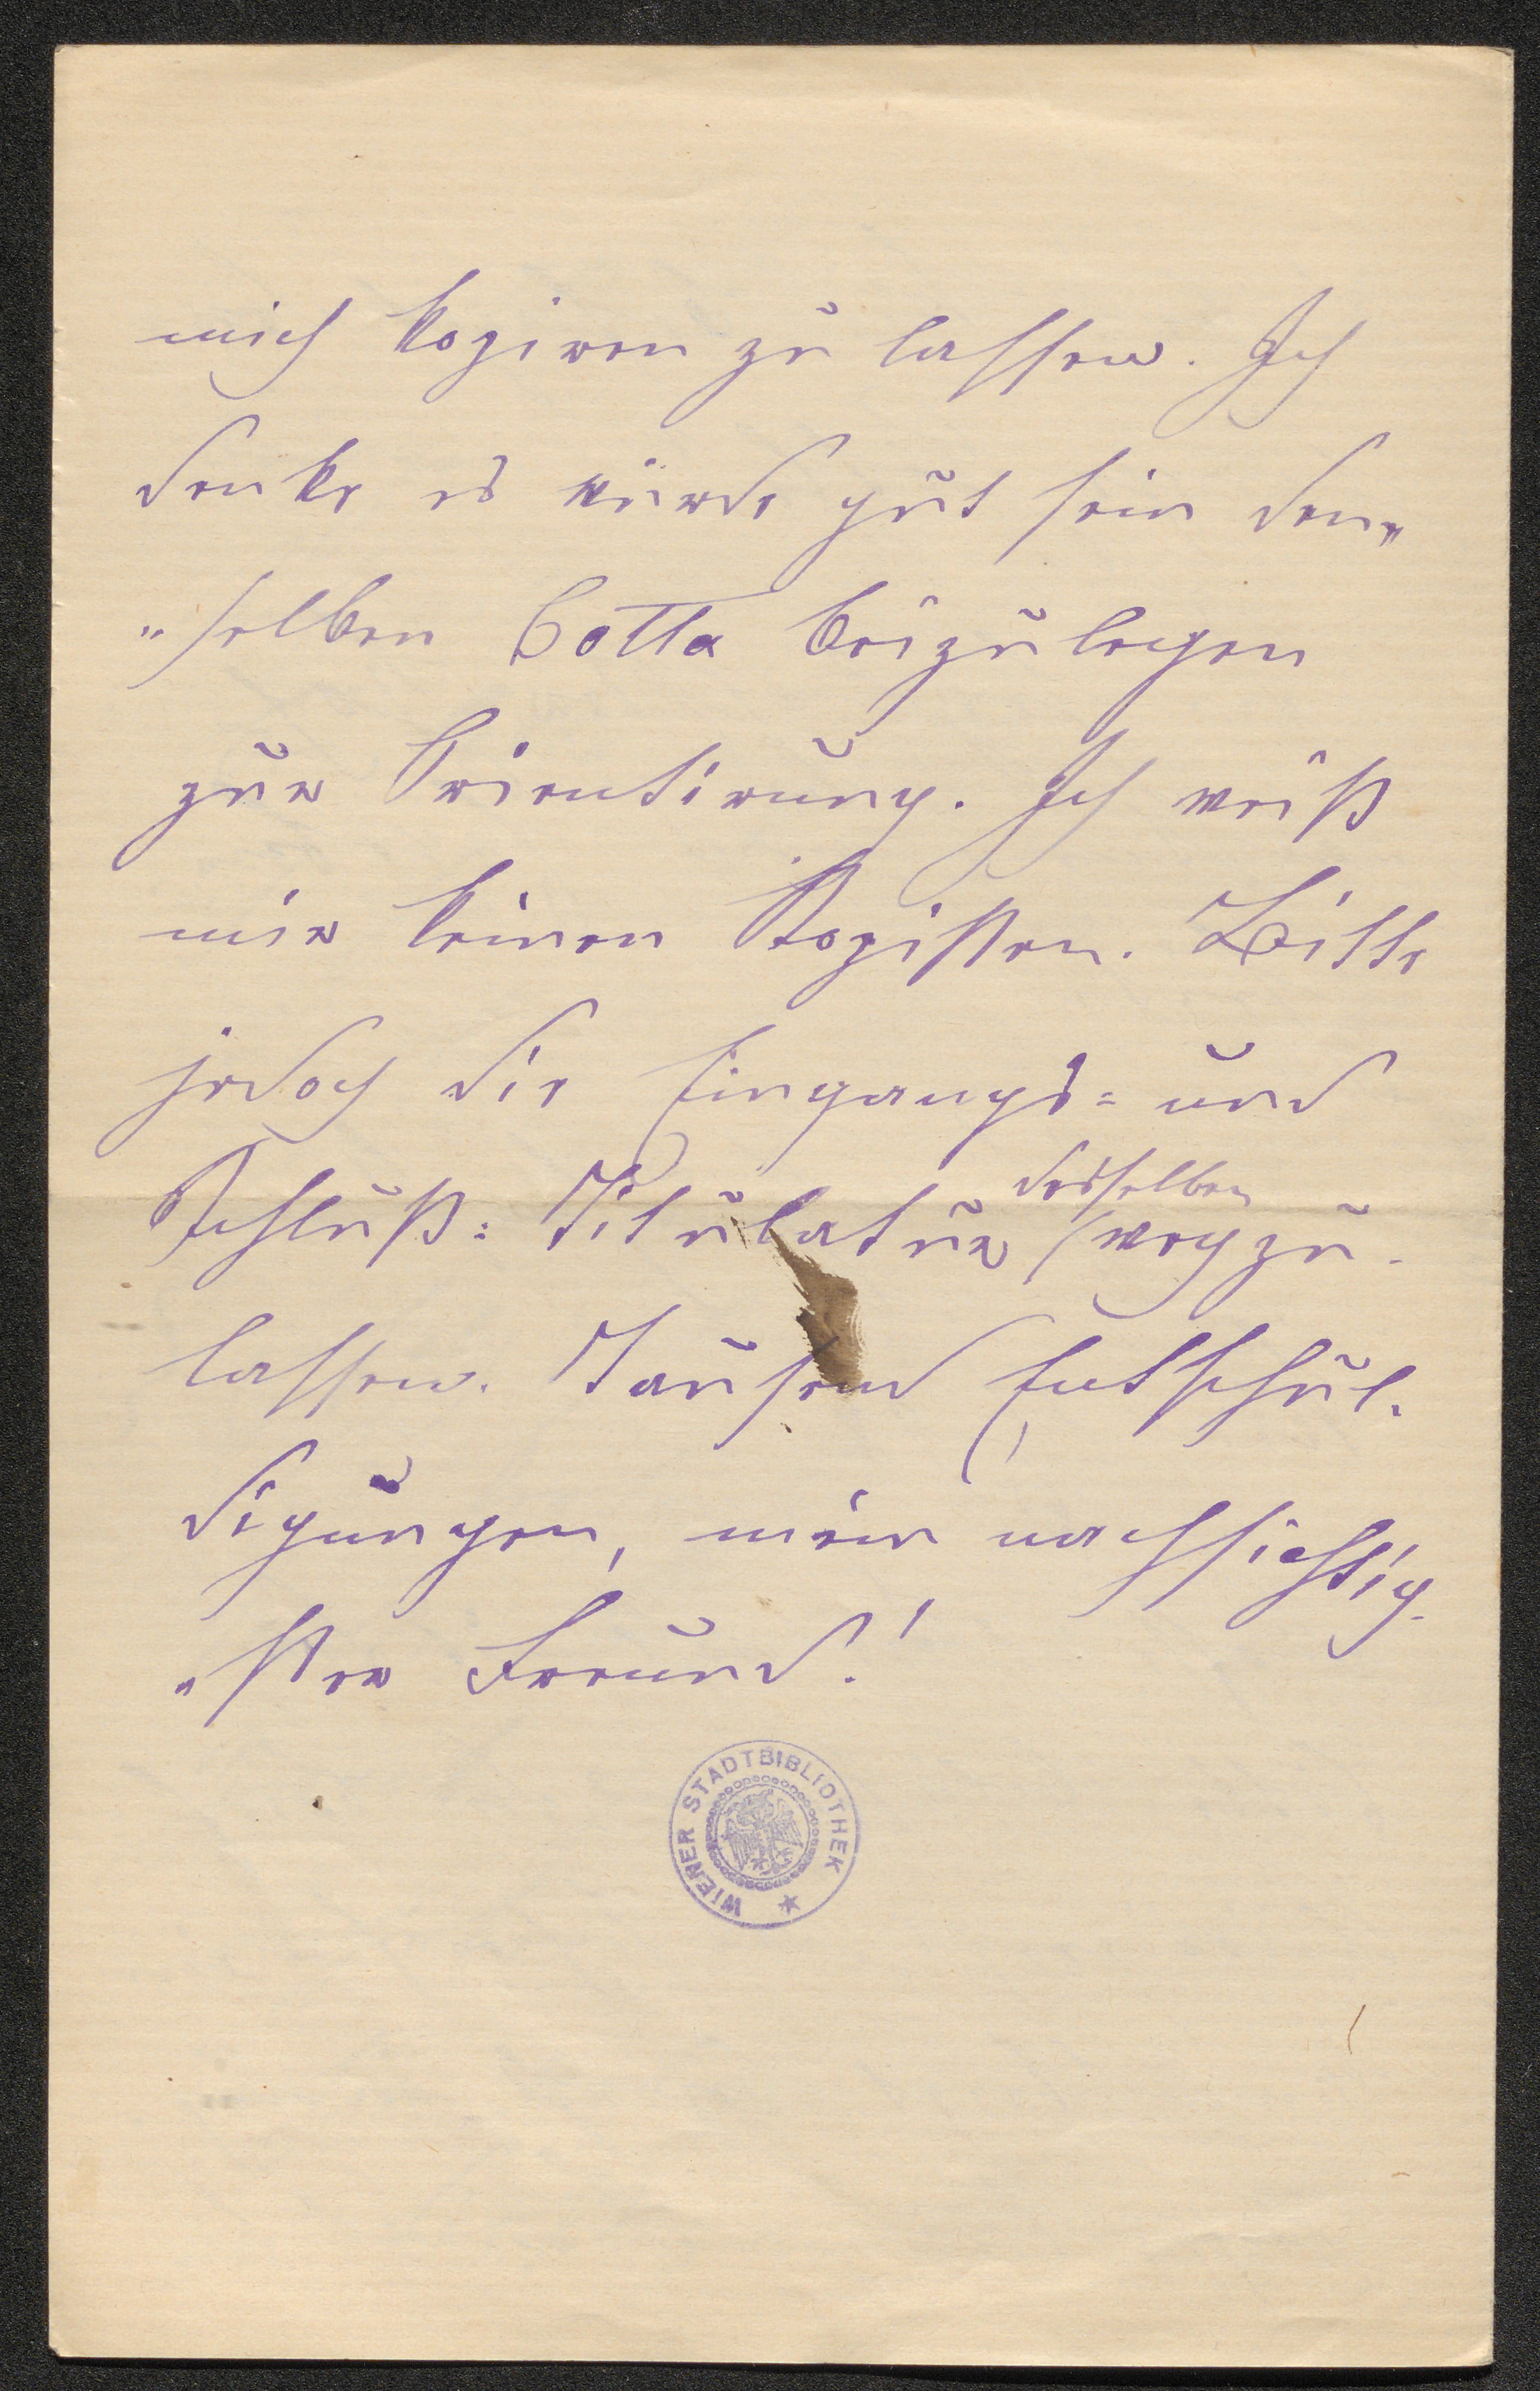 mich kopiren zu lassen. Ich
denke es würde gut sein den„
„selben Cotta beizulegen
zur Orientirung. Ich weiß
mir keinen Kopisten. Bitte
jedoch die Eingangs= und
Schluß= Titulatur desselben wegzu-
lassen. Tausend Entschul-
digungen, mein nachsichtig-
„ster Freund!
WIENER STADTBIBLIOTHEK